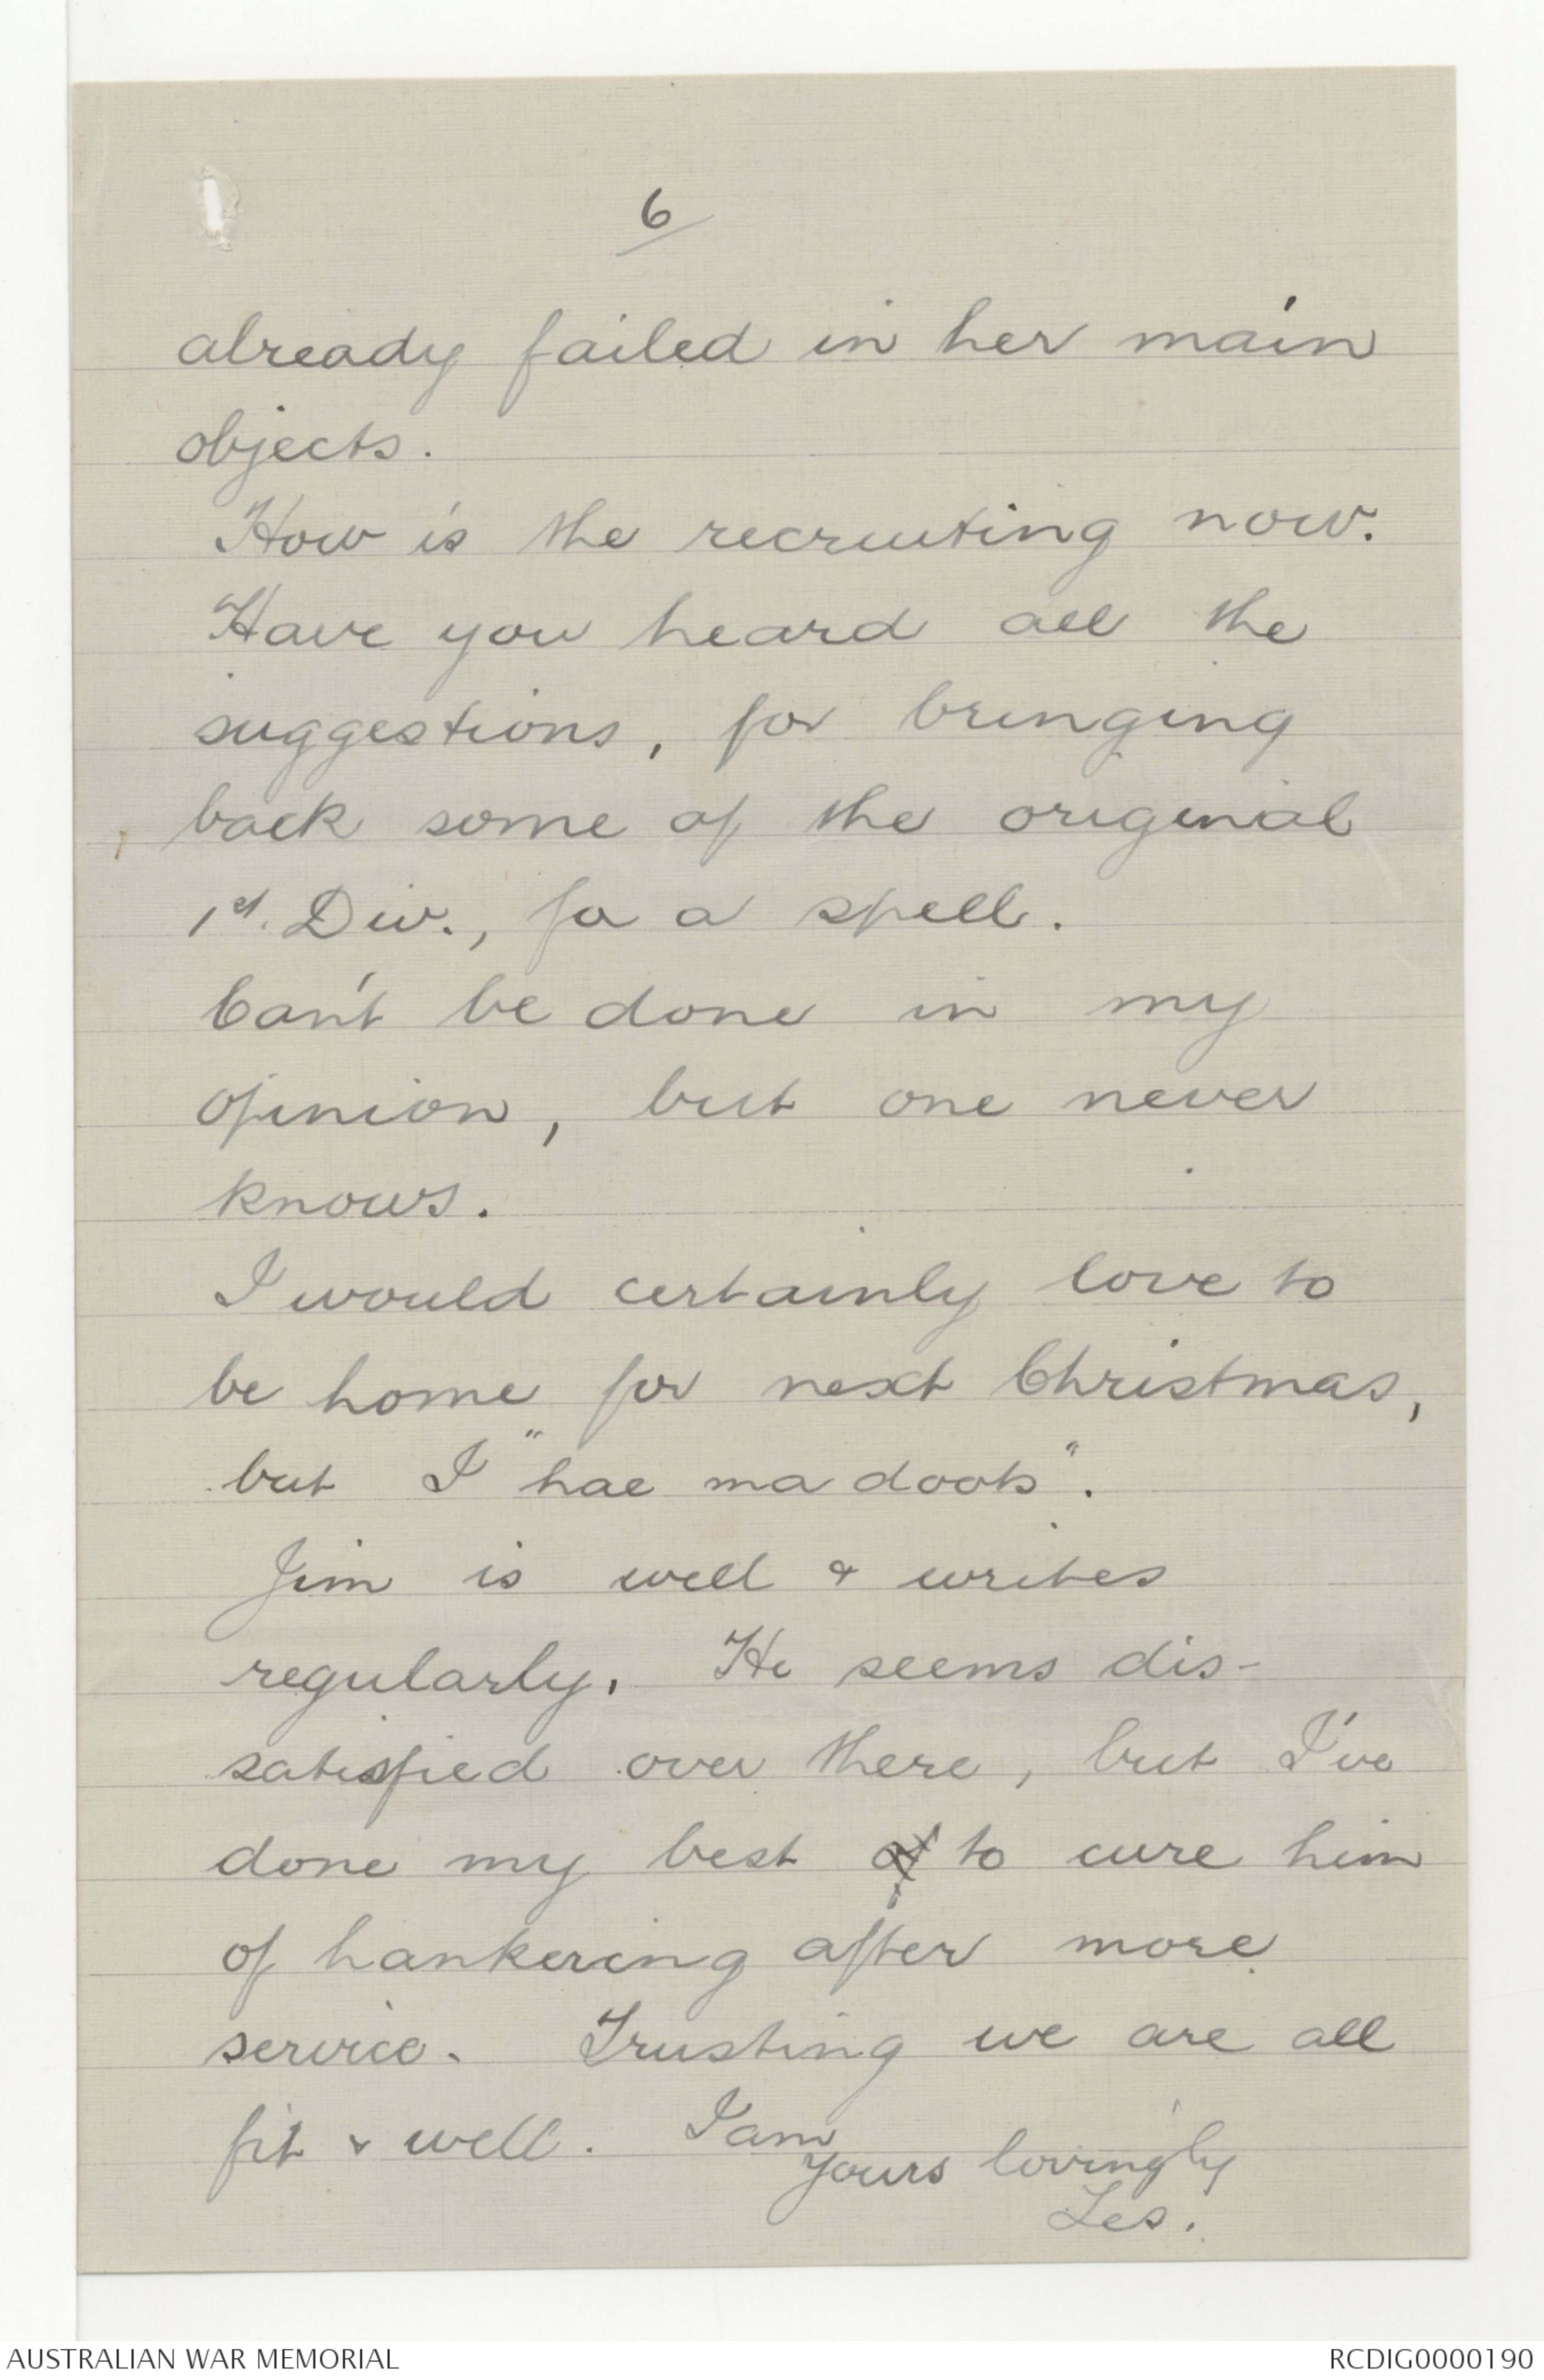 6
already failed in her main
objects.
How is the recruiting now.
Have you heard all the
suggestions, for bringing
back some of the original
1st. Div., for a spell.
Can't be done in my
opinion, but one never
knows.
I would certainly love to
be home for next Christmas,
but I "hae ma doots".
Jim is well & writes
regularly. He seems dis-
satisfied over there, but I've
done my best to cure him
of hankering after more
service. Trusting we are all
fit & well. I am
yours lovingly
Les.
AUSTRALIAN WAR MEMORIAL
RCDIG0000190